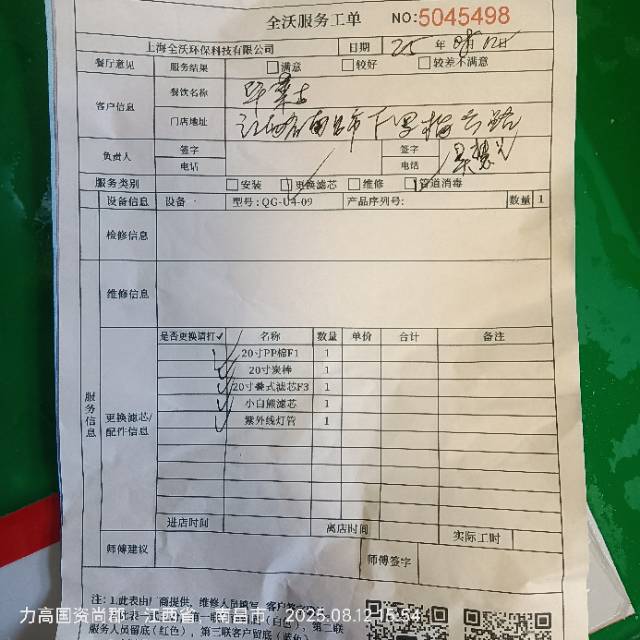 全沃服务工单 NO:5045498
上海全沃环保科技有限公司 日期 25 年 08月 12日
餐厅意见 服务结果 □满意 □较好 □较差不满意
客户信息 餐饮名称
门店地址
负责人 签字 签字
电话 电话
服务类别 □安装 □更换滤芯 □维修 □管道消毒
设备信息 设备 型号:QG-U4-09 产品序列号: 数量 1
检修信息
维修信息
服务信息
更换滤芯/配件信息
是否更换请打✓ 名称 数量 单价 合计 备注
✓ 20寸PP棉F1 1
✓ 20寸炭棒 1
✓ 20寸叠式滤芯F3 1
✓ 小白熊滤芯 1
✓ 紫外线灯管 1
进店时间 离店时间 实际工时
师傅建议 师傅签字
注:1.此表由厂商提供，维修人员填写
服务人员留底(红色)，第三联客户留底(蓝色)
力高国资尚郡，江西省，南昌市， 2025.08.12 15:54